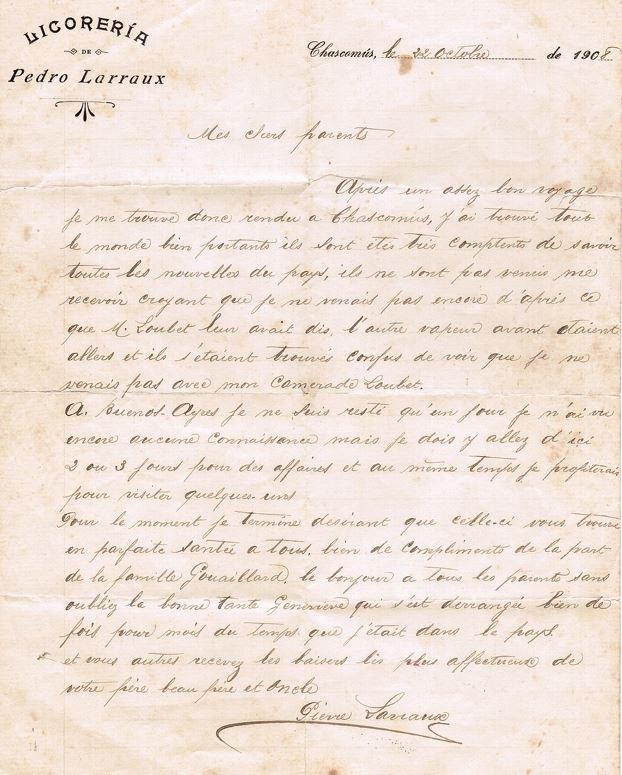 LICORERÍA
DE
Pedro Larraux
Chascomús, le 22 Octobre de 1908
Mes chers parents
Après un assez bon voyage
je me trouve donc rendu a Chascomús, J'ai trouvé tout
le monde bien portants ils sont etes très comptents de savoir
toutes les nouvelles du pays, ils ne sont pas venus me
recevoir croyant que je ne venais pas encore d'après ce
que M. Loubet leur avait dis, l'autre vapeur avant etaient
allers et ils s'étaient trouvés confus de voir que je ne
venais pas avec mon camerade Loubet.
A. Buenos-Ayres je ne suis resté qu'un jour je n'ai vu
encore aucune connaissance mais je dois y allez d'ici
2 ou 3 jours pour des affaires et au même temps je profiterais
pour visiter quelques-uns
Pour le moment je termine desirant que celle-ci vous trouve
en parfaite santée a tous. bien de compliments de la part
de la famille Gouaillard. le bonjour a tous les parents sans
oubliez la bonne tante Geneviève qui s'est derrangée bien de
fois pour mois du temps que j'était dans le pays
et vous autres recevez les baisers les plus affectueux de
votre frère beau frère et Oncle
Pierre Larraux